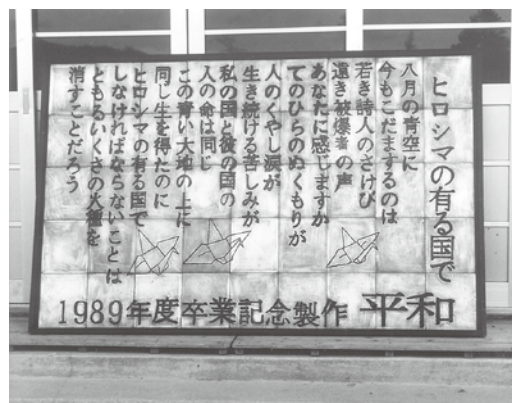 ヒロシマの有る国で
八月の青空に
今もこだまするのは
若き詩人のさけび
遠き被爆者の声
あなたに感じますか
てのひらのぬくもりが
人のくやし涙が
生き続ける苦しみが
私の国と彼の国の
人の命は同じ
この青い大地の上に
同じ生を得たのに
ヒロシマの有る国で
しなければならないことは
ともるいくさの火種を
消すことだろう
1989年度卒業記念製作 平和